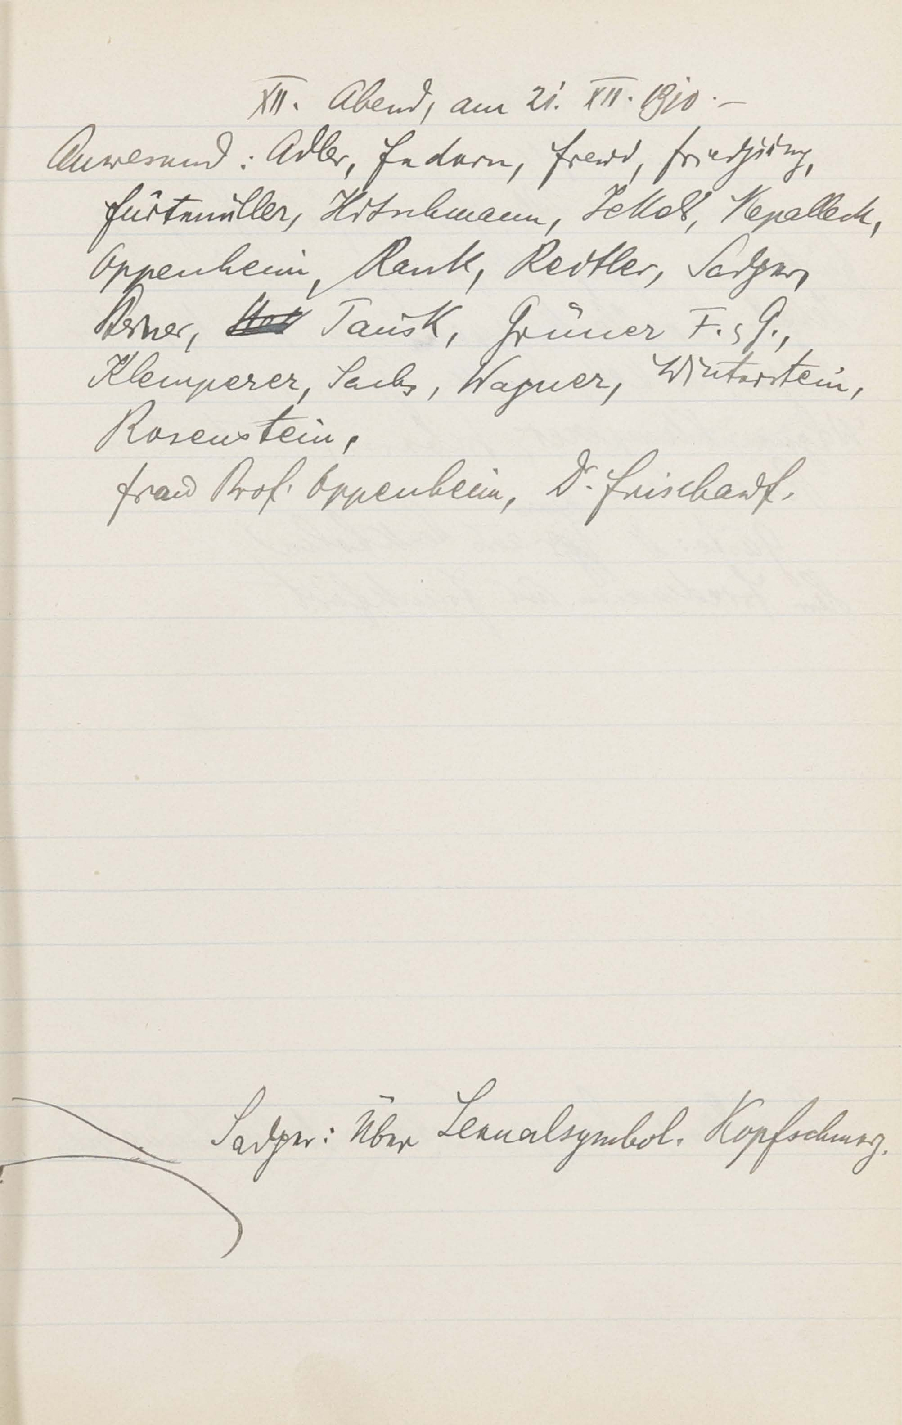 XII. Abend, am 21. XII. 1910.—
Anwesend: Adler, Federn, Freud, Friedjung,
Furtmüller, Hitschmann, Jekels, Nepalleck,
Oppenheim, Rank, Reitler, Sadger,
Steiner, Tausk, Grüner F. u. G.,
Klemperer, Sachs, Wagner, Winterstein,
Rosenstein,
Frau Prof. Oppenheim, Dr. Frischauf.
Sadger: Über Sexualsymbol. Kopfschmerz.